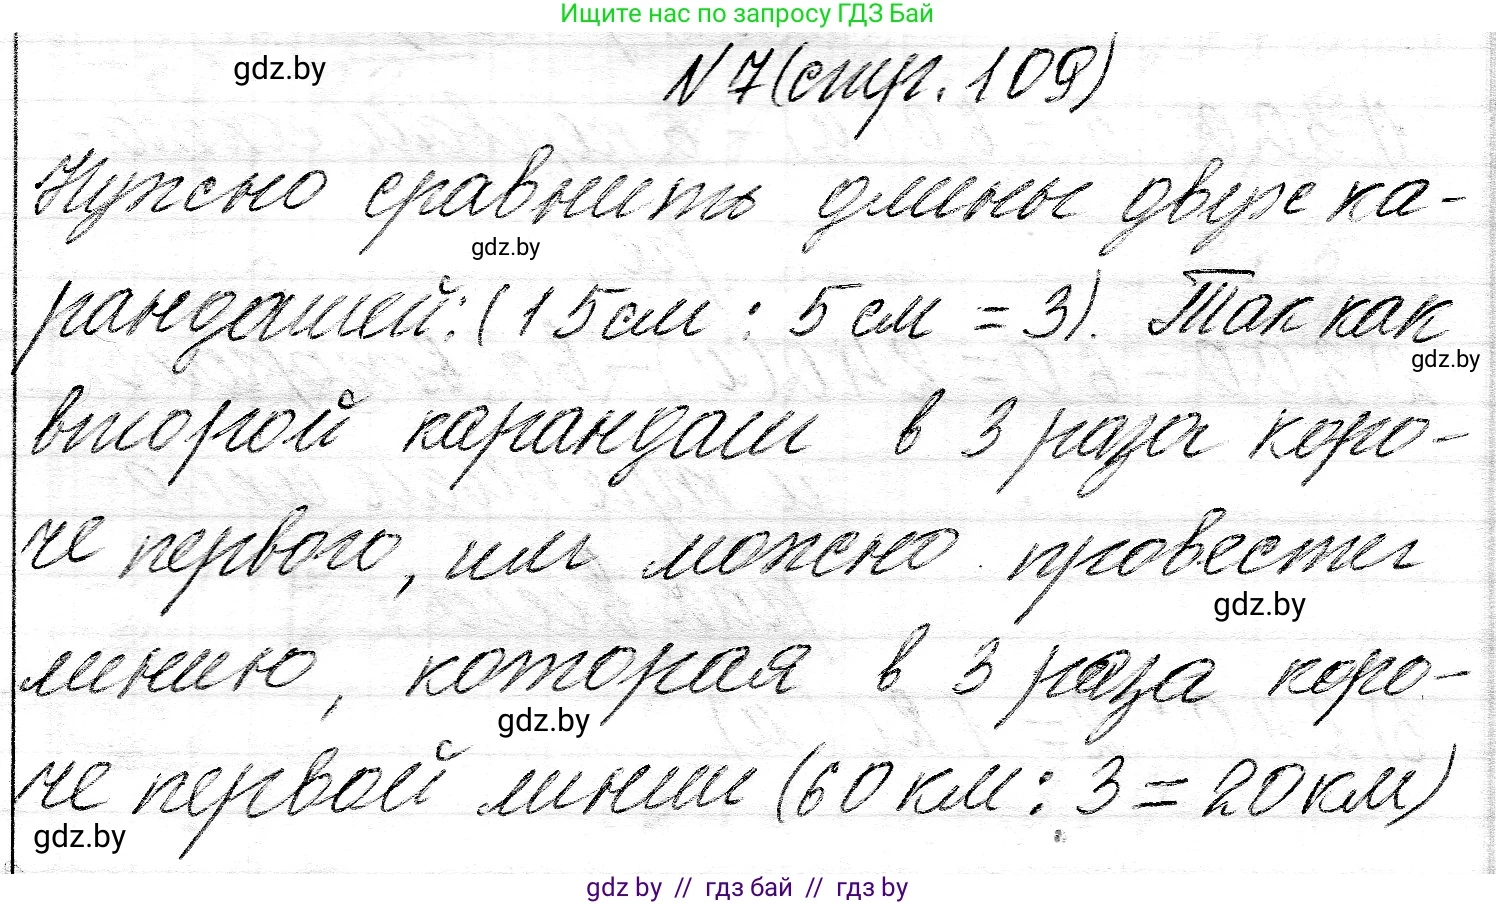 Ищите нас по запросу ГДЗ Бай
gdz.by
N 7 (стр. 109)
Нужно сравнить длины двух ка-
gdz.by
рандашей: (15 см : 5 см = 3). Так как
gdz.by
второй карандаш в 3 раза коро-
че первого, им можно провести
gdz.by
линию, которая в 3 раза коро-
gdz.by
че первой линии (60 км : 3 = 20 км)
gdz.by
gdz by // гдз бай // гдз by